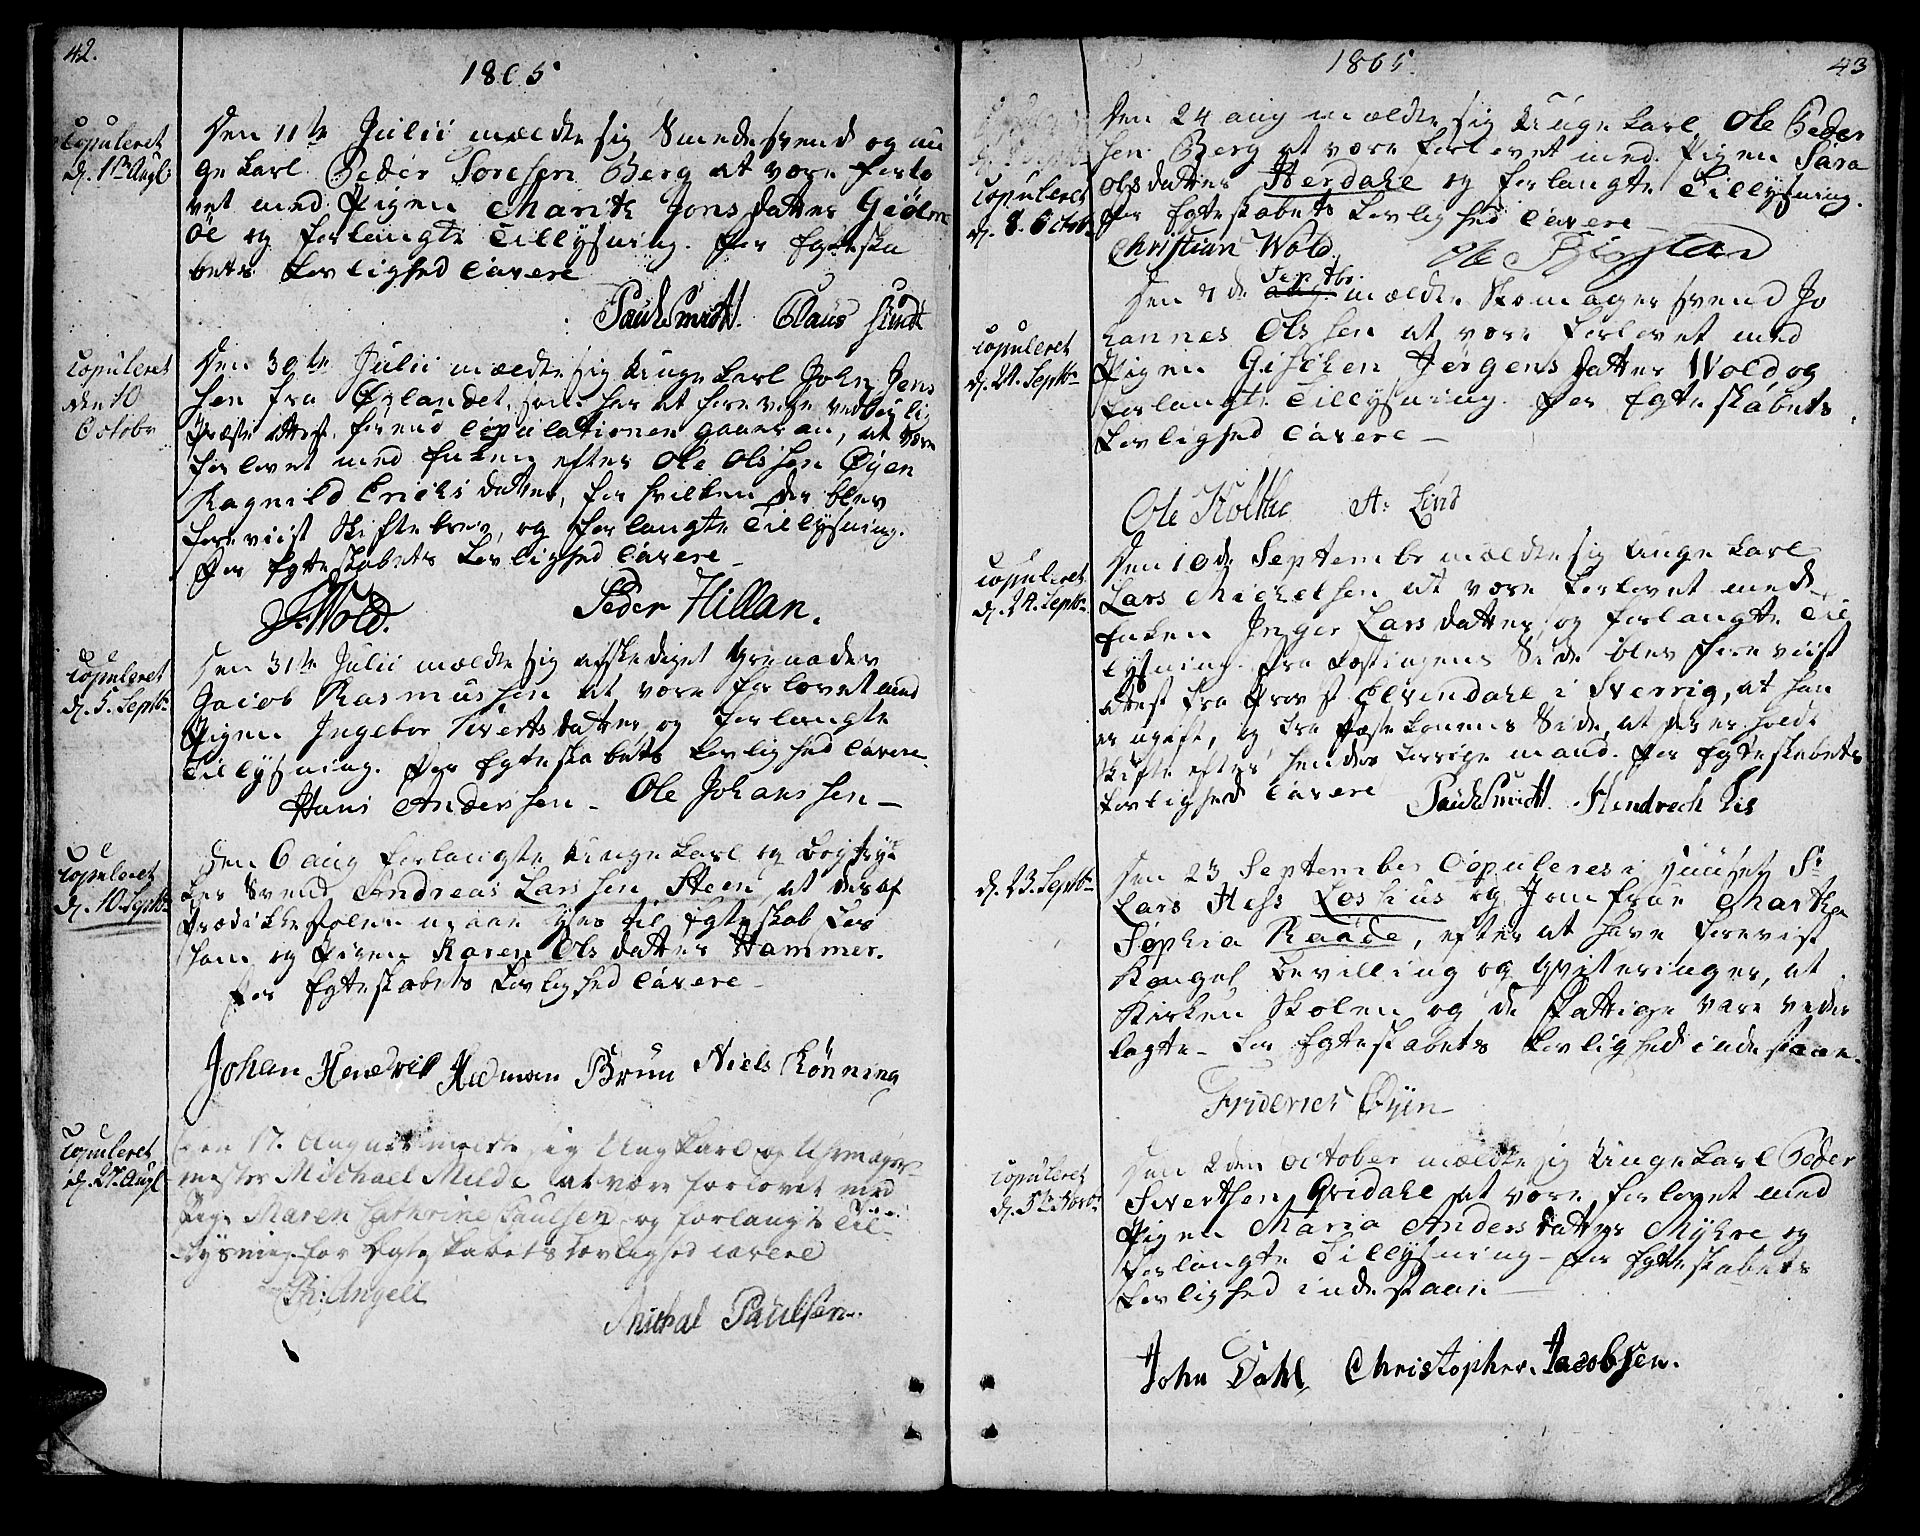 42.
1805
Copuleret
d. 1ste Augt
Den 11te Julii mældte sig Smedesvend og un
ge Karl Peder Sørensen Berg at være forlo
vet med Pigen Marith Jonsdatter Giølme
öe og forlangte Tillysning. For Egteska
bets Lovlighed Cavere
Paul Smidt. Claus
Copuleret
den 10
Octobr
Den 30te Julii mældte sig Unge Karl John Jens
sen fra Ørlandet, som har at foreviise vedbørlig
Præste Attest, førend Copulationen gaaer an, at være
forlovet med Enken efter Ole Olssen Øyen
Ragnild Erichsdatter, for hvilken der blev
foreviist Skiftebrev, og forlangte Tillysning.
For Egteskabets Lovlighed Cavere
Wold. Peder Hillan.
Copuleret
d. 5. Septbr
Den 31te Julii mældte sig afskediget Grenader
Jacob Rasmussen at være forlovet med
Pigen Ingebor Sivertsdatter og forlangte
Tillysning. For Egteskabets Lovlighed Cavere
Hans Anderssen - Ole Johanssen -
Copuleret
d. 10 Septbr
Den 6 aug forlangte Unge Karl og Bogtryk
ker Svend Andreas Larssen Steen, at der af
Prædikestolen maae lyses til Egteskab for
ham og Pigen Karen Olsdatter Hammer.
For Egteskabets Lovlighed Cavere
Johan Hendrik Hedman Brun Niels Rönning
Copuleret
d. 27. Augt
Den 17. August meldte sig Ung Karl og Uhrmager-
mester Michael Milde at være forlovet med
Pige Maren Cathrine Paulsen og forlangte Til-
lysning for Egteskabets Lovlighed cavere
Th: Angell
Michal Paulsen.
1805.
43
Copuleret
d. 8. Octob.
Den 24 aug mældte sig Unge Karl Ole Peder
sen Berg at være forlovet med Pigen Sara
Olsdatter Herdahl og forlangte Tillysning.
For Egteskabets Lovlighed Cavere
Christian Wold. Ole
Copuleret
d. 24. Septbr
Septbr
Den 7de aug. mældte Skomager svend Jo
hannes Olssen at være forlovet med
Pigen Gischen Jørgensdatter Wold og
forlangte Tillysning. For Egteskabets
Lovlighed Cavere -
Ole Holthe A: Lind
Copuleret
d. 24. Septbr
Den 10de Septembr mældte sig Unge Karl
Lars Michelsen at være forlovet med
Enken Inger Larsdatter, og forlangte Til
lysning. Fra Fæstingens Side blev foreviist
Attest fra Provst Elvendahl i Sverrig, at han
er ugift, og fra Fæstekonens Side, at der er holdt
Skifte efter hendes forrige mand. For Egteskabets
Lovlighed Cavere Paul Smidt. Hendrech Lie
d. 23. Septbr
Den 23 September Copuleres i Huuset Sr
Lars Hess Loshius og Jomfrue Martha
Sophia Raade, efter at have foreviist
Kongel. Bevilling og Qviteringer, at
Kirken Skolen og de Fattige vare veder
lagte - For Egteskabets Lovlighed indestaae.
Friderich Øyen
Copuleret
d. 5te Novbr
Den 2den October mældte sig Unge Karl Peder
Sivertsen Qvidahl at være forlovet med
Pigen Maria Andersdatter Myhre og
forlangte Tillysning - For Egteskabets
Lovlighed indestaaer
John Dahl, Christopher Jacobsen.